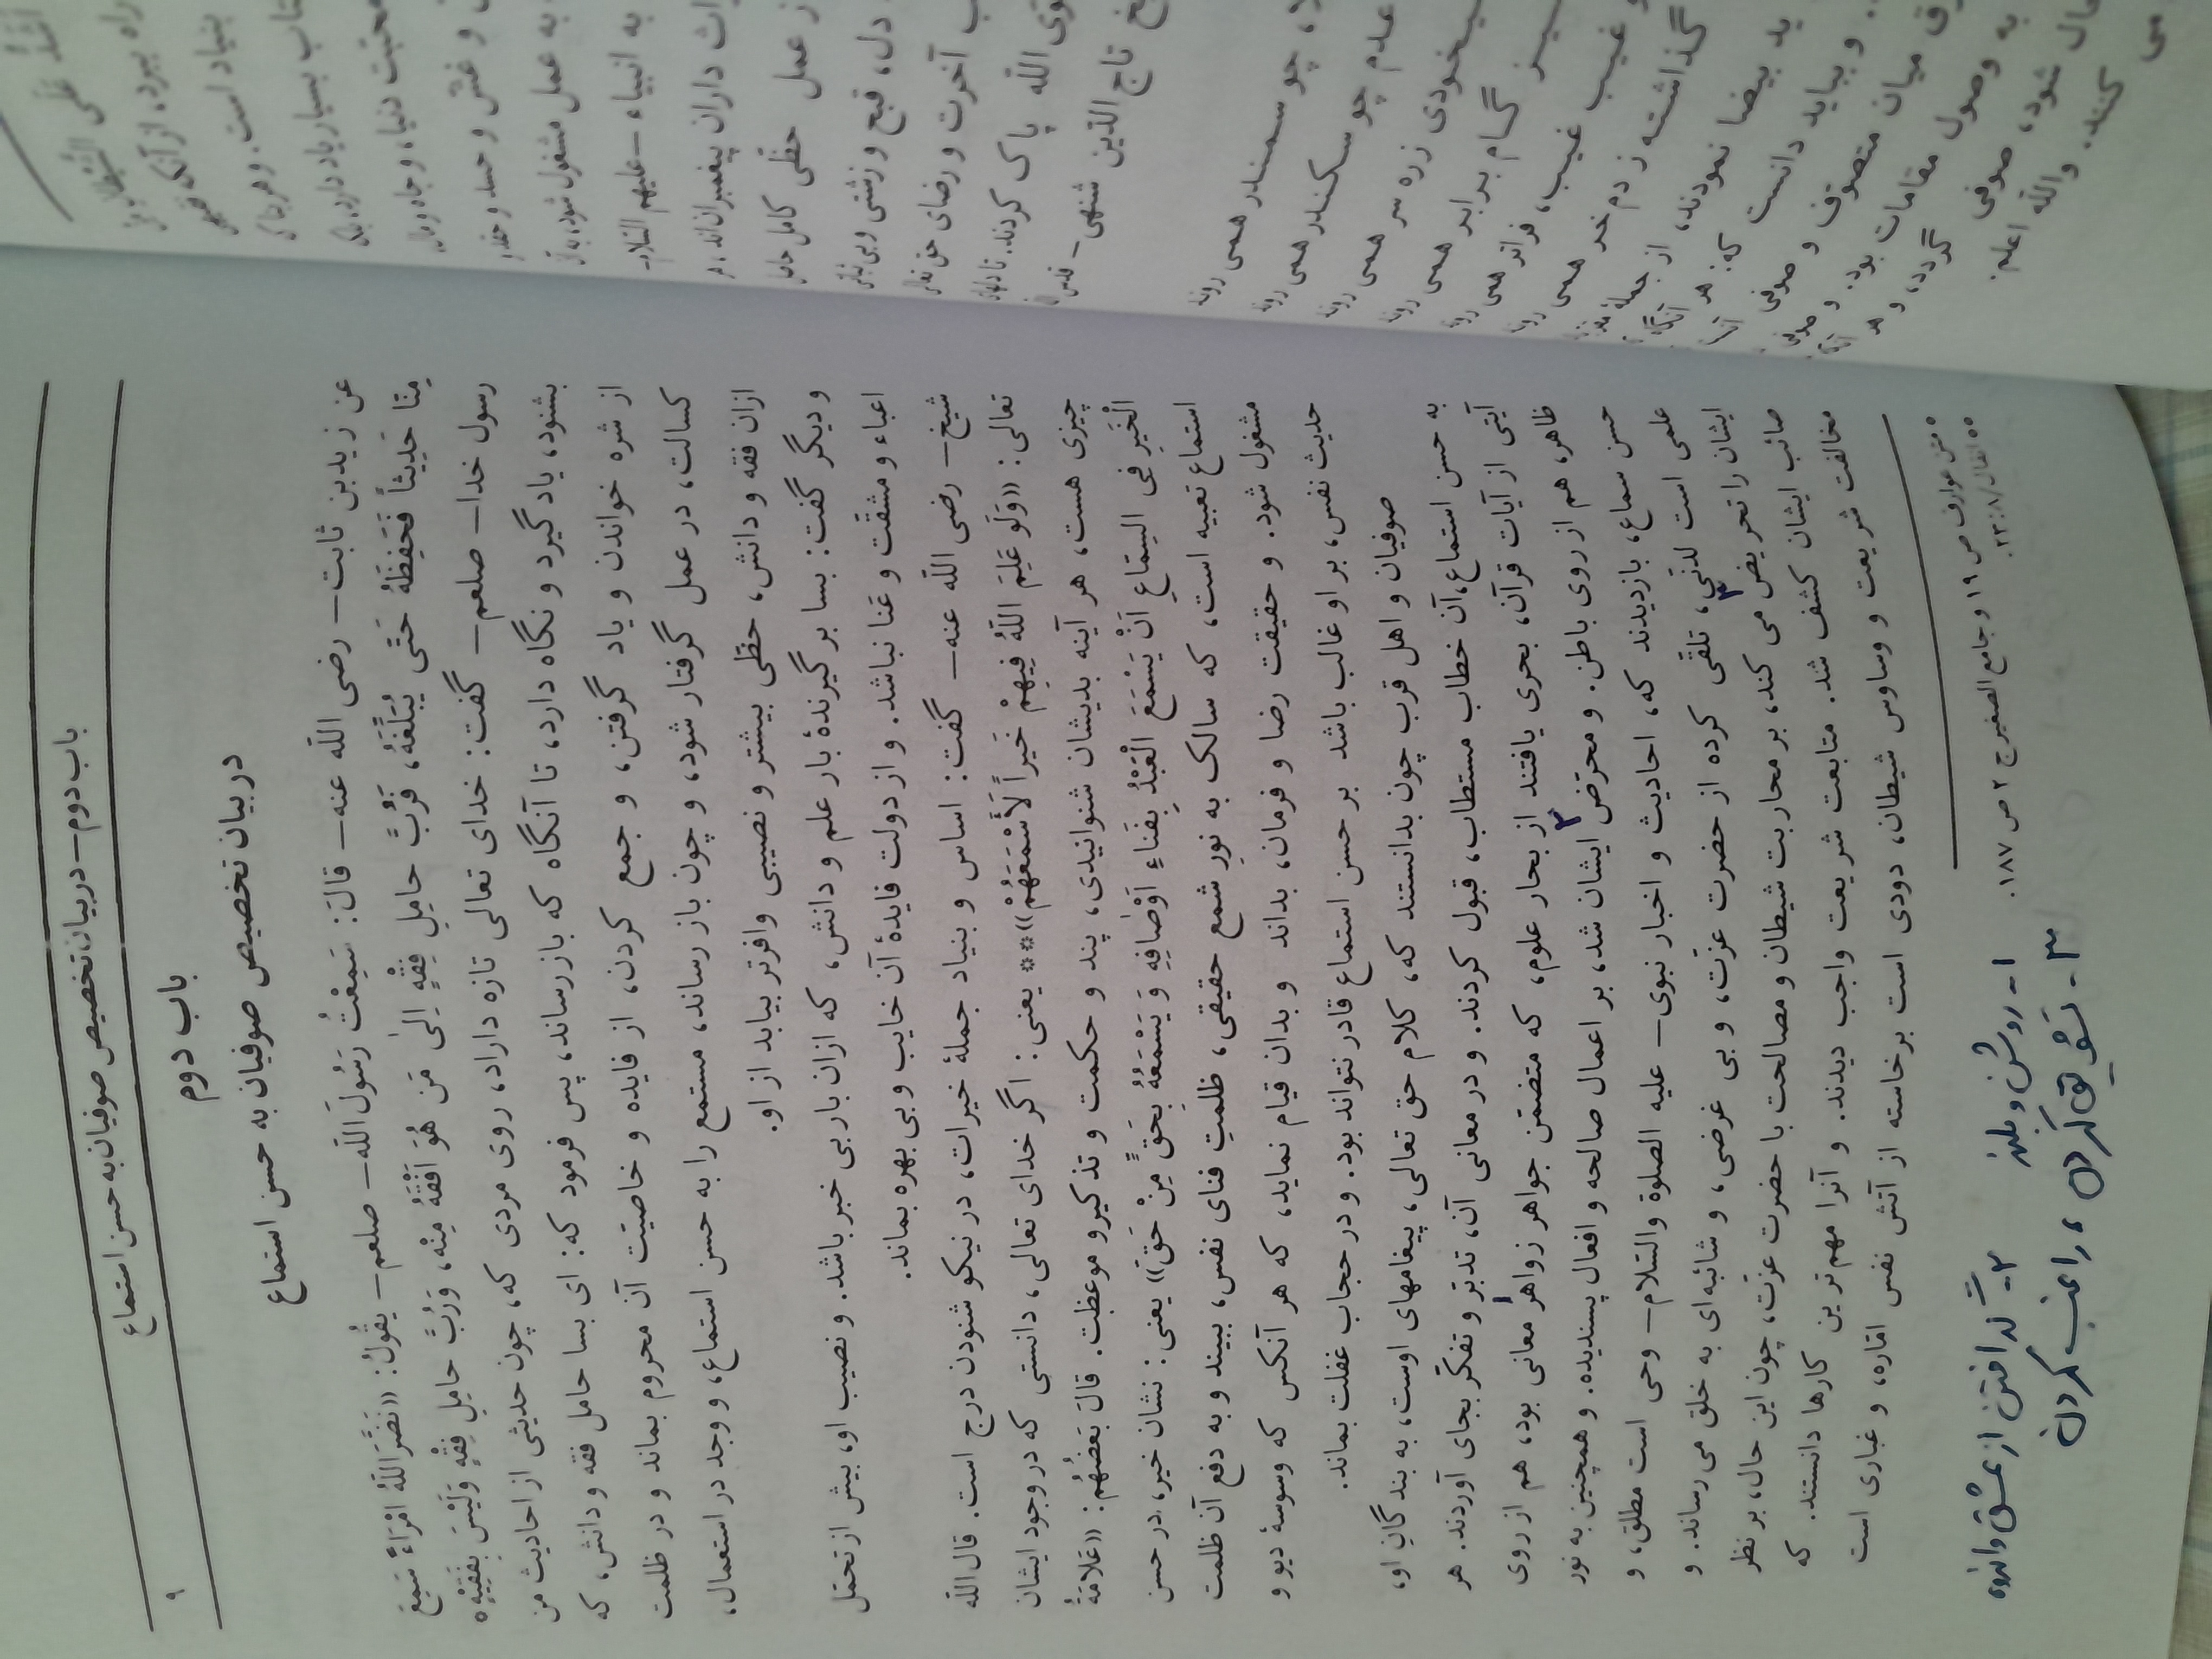 باب دوم — در بیان تخصیص صوفیان به حسن استماع
۹
باب دوم
در بیان تخصیص صوفیان به حسن استماع
عن زید بن ثابت — رضی الله عنه — قالَ: سَمِعْتُ رَسُولَ الله — صلعم — یقُولُ: «نَضَّرَ اللّهُ امْرَاءً سَمِعَ
مِنّا حَدِیثاً فَحَفِظَهُ حَتّی یُبَلِّغَهُ، فَرُبَّ حامِلِ فِقْهٍ اِلیٰ مَن هُوَ اَفْقَهُ مِنْه، وَرُبَّ حامِلِ فِقْهٍ وَلَیْسَ بِفَقیِهْ*
رسول خدا — صلعم — گفت: خدای تعالی تازه داراد، روی مردی که، چون حدیثی از احادیث من
بشنود، یاد گیرد و نگاه دارد، تا آنگاه که بازرساند، پس فرمود که: ای بسا حامل فقه و دانش، که
از شره خواندن و یاد گرفتن، و جمع کردن، از فایده و خاصیّت آن محروم بماند و در ظلمت
کسالت، در عمل گرفتار شود، و چون باز رساند، مستمع را به حسن استماع، و وجد در استعمال،
ازان فقه و دانش، حظّی بیشتر و نصیبی وافرتر بیابد از او.
و دیگر گفت: بسا برگیرندهٔ بار علم و دانش، که ازان باربی خبر باشد. و نصیب او، بیش از تحمّل
اعباء و مشقّت و عَنا نباشد. و از دولت فایدهٔ آن خایب و بی بهره بماند.
شیخ — رضی الله عنه — گفت: اساس و بنیاد جملهٔ خیرات، در نیکو شنودن درج است. قال الله
تعالی: «وَلَو عَلِمَ اللّهُ فیهِمْ خَیراً لَأَسْمَعَهُمْ»** یعنی: اگر خدای تعالی، دانستی که در وجود ایشان
چیزی هست، هر آینه بدیشان شنوانیدی، پند و حکمت و تذکیر و موعظت. قالَ بَعضُهُم: «عَلامَةُ
الْخَیرِ فی السِتماعِ اَنْ یَسْمَعَ الْعَبْدُ بِفَناءِ اَوْصافِهِ وَیَسْمَعُهُ بِحَقٍّ مِنْ حَق» یعنی: نشان خیر، در حسن
استماع تعبیه است، که سالک به نورِ شمع حقیقی، ظلمتِ فنای نفس، ببیند و به دفع آن ظلمت
مشغول شود. و حقیقت رضا و فرمان، بداند و بدان قیام نماید، که هر آنکس که وسوسهٔ دیو و
حدیث نفس، بر او غالب باشد بر حسن استماع قادر نتواند بود. و در حجاب غفلت بماند.
صوفیان و اهل قرب چون بدانستند که، کلام حق تعالی، پیغامهای اوست، به بندگانِ او،
به حسن استماع، آن خطاب مستطاب، قبول کردند. و در معانی آن، تدبّر و تفکّر بجای آوردند. هر
آیتی از آیات قرآن، بحری یافتند از بحار علوم، که متضمّن جواهر زواهر۱ معانی بود، هم از روی
ظاهر، هم از روی باطن. و محرّض۲ ایشان شد، بر اعمال صالحه و افعال پسندیده. و همچنین به نور
حسن سماع، بازدیدند که، احادیث و اخبار نبوی — علیه الصلوة والسّلام — وحی است مطلق، و
علمی است لدنّی، تلقی کرده از حضرت عزّت، و بی غرضی، و شائبه‌ای به خلق می رساند. و
ایشان را تحریض۳ می کند، بر محاربت شیطان و مصالحت با حضرت عزّت، چون این حال، بر نظر
صائب ایشان کشف شد. متابعت شریعت واجب دیدند. و آنرا مهم ترین کارها دانستند. که
مخالفت شریعت و وساوس شیطان، دودی است برخاسته از آتش نفس امّاره، و غباری است
* متن عوارف ص ۱۹ و جامع الصغیر ج ۲ ص ۱۸۷.
** انفال/۲۳:۸.
۱ - روشن و بلند
۲ - گداختن از عشق و اندوه
۳ - تشویق کردن، راغب کردن
اَشَدُّ عَلَی الشَّیْطانِ
راه ببرد، از آنکه
بنیاد است. و هر
بسیار یاد دارد،
محبّت دنیا، و جاه و
و غش و حسد و حقد
به عمل مشغول شود،
به انبیاء — علیهم السّلام —
داران پیغمبران‌اند،
عمل حظّی کامل
دل، قبح و زشتی و
آخرت و رضای حق تعالی
الله پاک کردند. تا
تاج الدّین
چو سمندر همی روند
عدم چو سکندر همی روند
بیخودی زره سر همی روند
گام برابر همی روند
غیب غیب، فراتر همی روند
گذاشته ز دم خر همی روند
ید بیضا نمودند، از جمله
و بباید دانست که: هر
میان متصوف و صوفی
به وصول مقامات بود. و صوفی
شود، صوفی گردد، و هر
می کنند. والله اعلم.